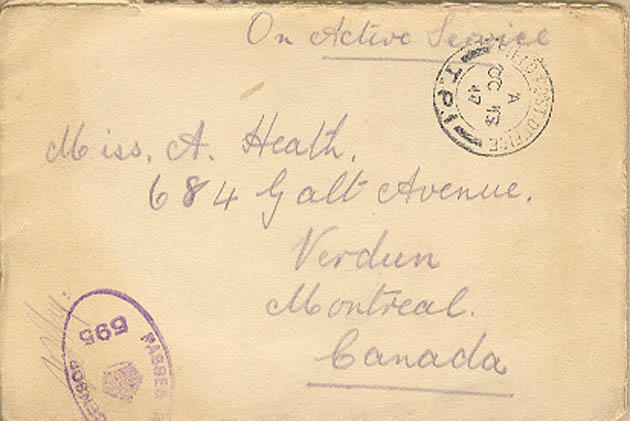 On Active Service
FIELD POST OFFICE
T.P.1
A
OC 13
17
Miss. A. Heath.
684 Galt Avenue.
Verdun
Montreal.
Canada
PASSED
595
CENSOR